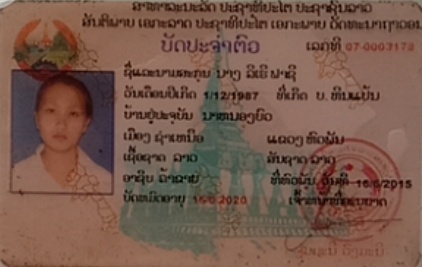 ສາທາລະນະລັດ ປະຊາທິປະໄຕ ປະຊາຊົນລາວ
ສັນຕິພາບ ເອກະລາດ ປະຊາທິປະໄຕ ເອກະພາບ ວັດທະນາຖາວອນ
ບັດປະຈຳຕົວ
ເລກທີ 07-0003173
ຊື່ແລະນາມສະກຸນ ນາງ
ວັນເດືອນປີເກີດ 1/12/1987 ທີ່ເກີດ ບ.
ບ້ານຢູ່ປະຈຸບັນ
ເມືອງ ຊຳເໜືອ ແຂວງ ຫົວພັນ
ເຊື້ອຊາດ ລາວ ສັນຊາດ ລາວ
ອາຊີບ ຄ້າຂາຍ ທີ່ຫົວພັນ ວັນທີ 16/6/2015
ບັດໝົດອາຍຸ 16/6/2020